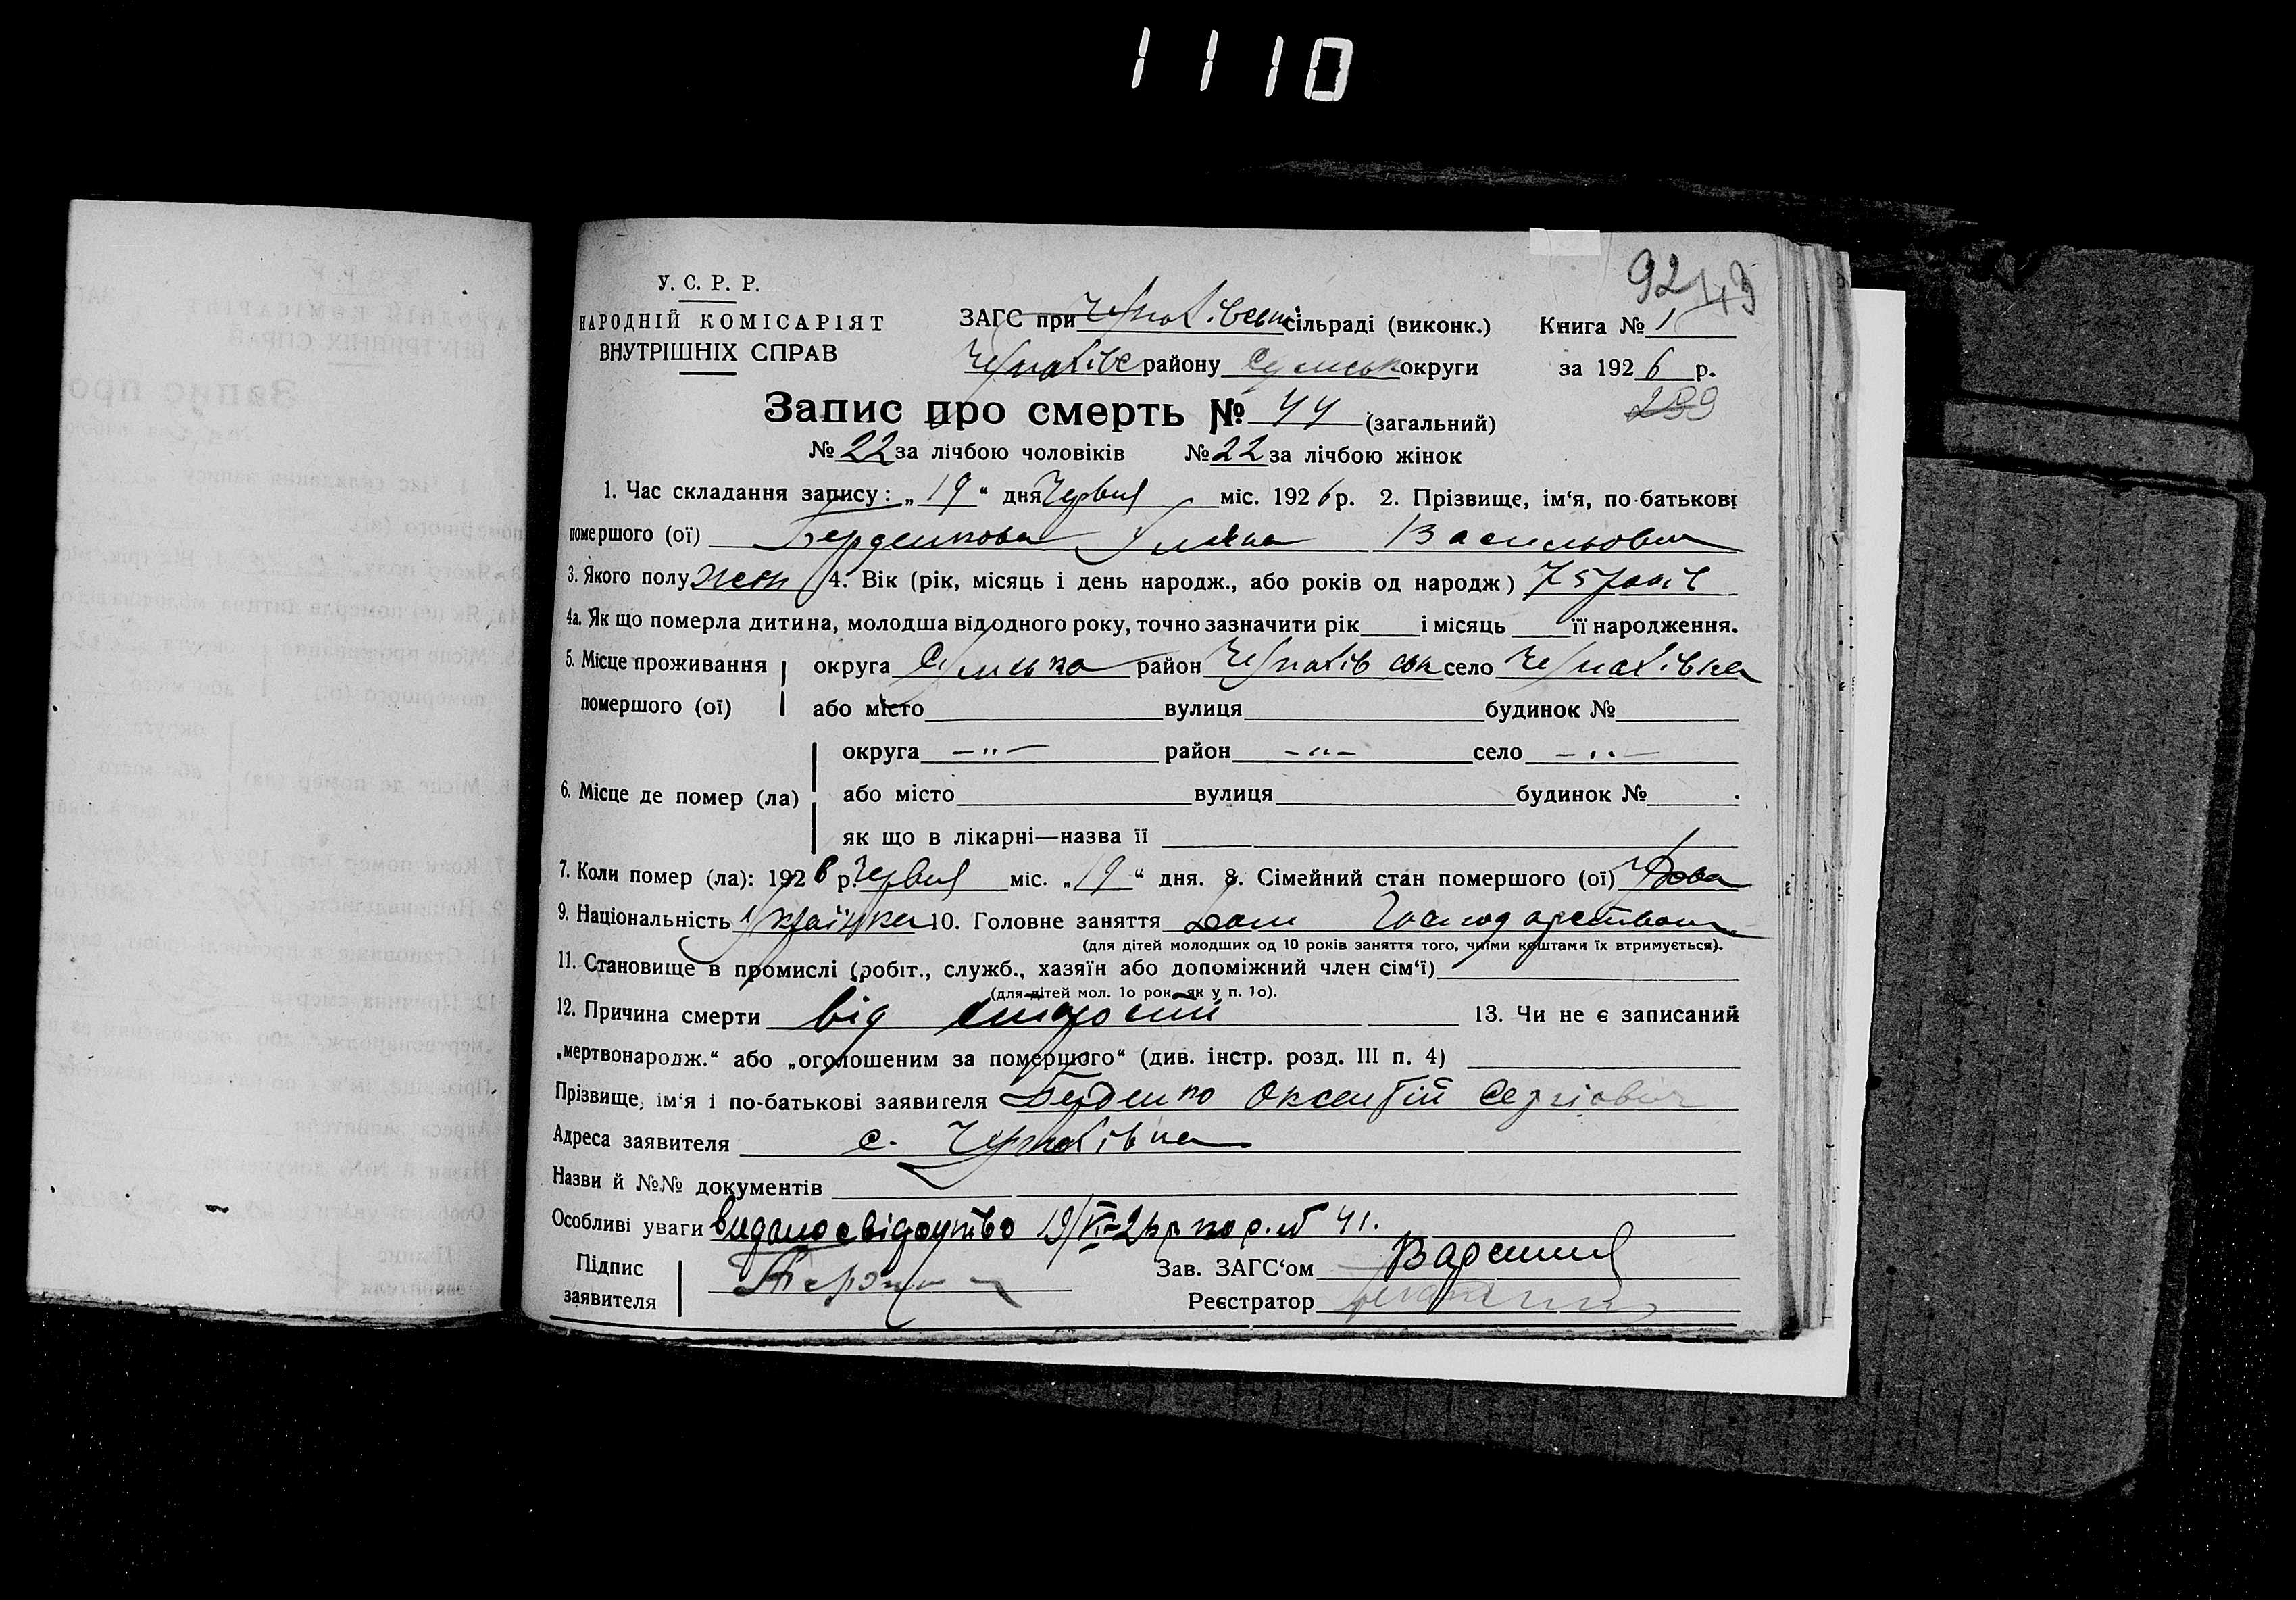 1110
92
У. С. Р. Р.
НАРОДНІЙ КОМІСАРІЯТ
ВНУТРІШНІХ СПРАВ
ЗАГС при сільраді (виконк.) Книга № 1
району Сумськ округи за 1926 р.
299
Запис про смерть № 44 (загальний)
№ 22 за лічбою чоловіків № 22 за лічбою жінок
1. Час складання запису: „19“ дня Червня міс. 1926 р. 2. Прізвище, ім‘я, по-батькові
помершого (ої) Уляна Васильовна
3. Якого полу жін 4. Вік (рік, місяць і день народж., або років од народж) 75 років
4а. Як що померла дитина, молодша від одного року, точно зазначити рік і місяць її народження.
5. Місце проживання округа Сумська район село
помершого (ої) або місто вулиця будинок №
округа —„— район —„— село —„—
6. Місце де помер (ла) або місто вулиця будинок №
як що в лікарні—назва її
7. Коли помер (ла): 1926 р. Червня міс. „19“ дня. 8. Сімейний стан помершого (ої) Удова
9. Національність Українка 10. Головне заняття
(для дітей молодших од 10 років заняття того, чиїми коштами їх втримується).
11. Становище в промислі (робіт., служб., хазяїн або допоміжний член сім‘ї)
(для дітей мол. 1о рок. як у п. 1о).
12. Причина смерти від старости 13. Чи не є записаний
„мертвонародж.“ або „оголошеним за помершого“ (див. інстр. розд. III п. 4)
Прізвище, ім‘я і по-батькові заявителя Оксентій Сергіович
Адреса заявителя с.
Назви й №№ документів
Особливі уваги видано свідоцтво 19/VI-26 р. по р. № 41.
Підпис
заявителя
Зав. ЗАГС‘ом
Реєстратор